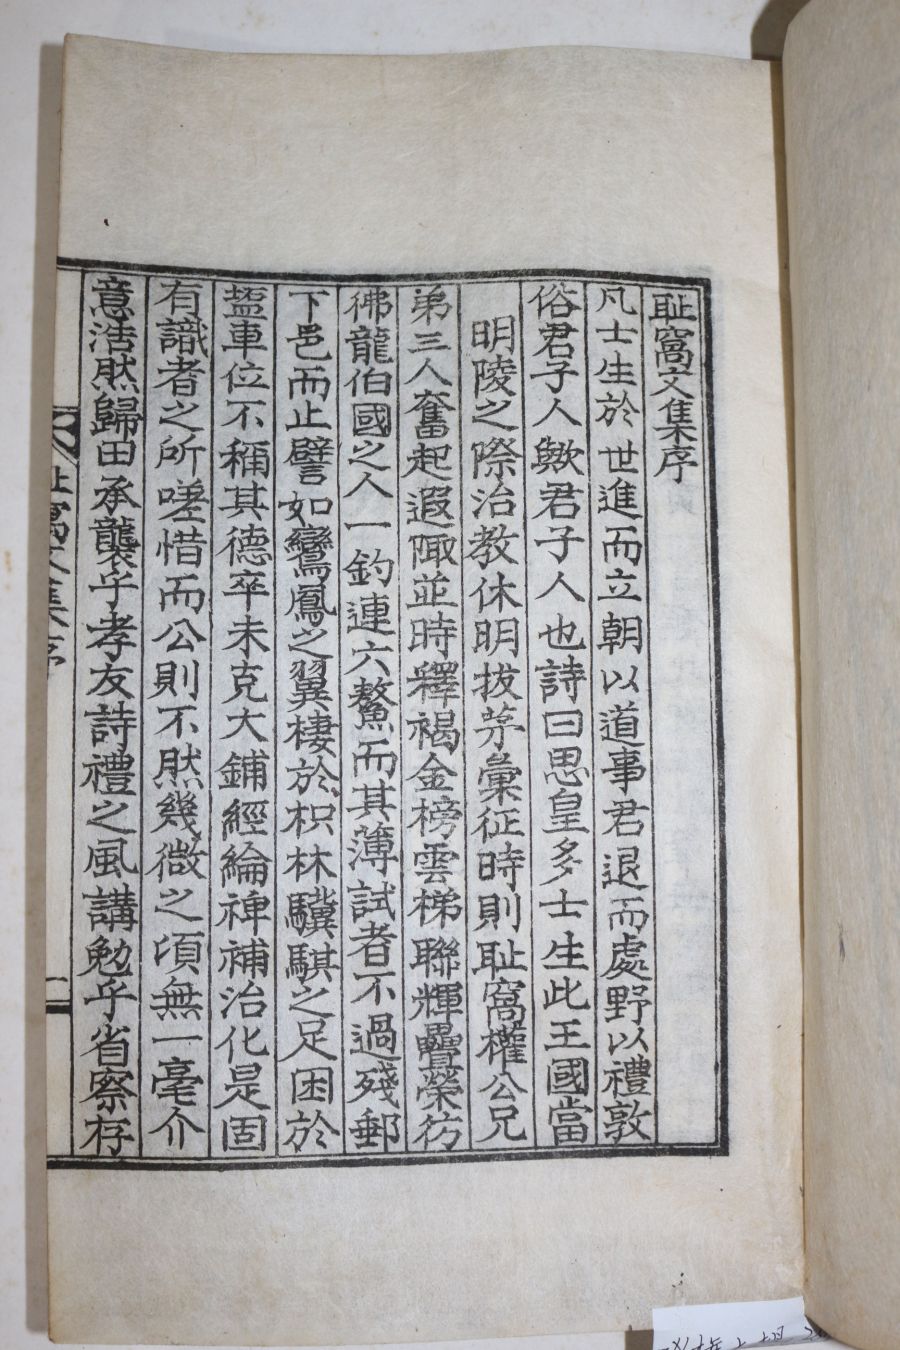 耻窩文集序
凡士生於世進而立朝以道事君退而處野以禮敦
俗君子人歟君子人也詩曰思皇多士生此王國當
明陵之際治教休明拔茅彙征時則耻窩權公兄
弟三人奮起遐陬並時釋褐金榜雲梯聯輝疊榮彷
彿龍伯國之人一釣連六鰲而其薄試者不過殘郵
下邑而止譬如鸞鳳之翼棲於枳林驥騏之足困於
盐車位不稱其德卒未克大鋪經綸裨補治化是固
有識者之所嗟惜而公則不然幾微之頃無一毫介
意浩然歸田承襲乎孝友詩禮之風講勉乎省察存
耻窩文集序
一